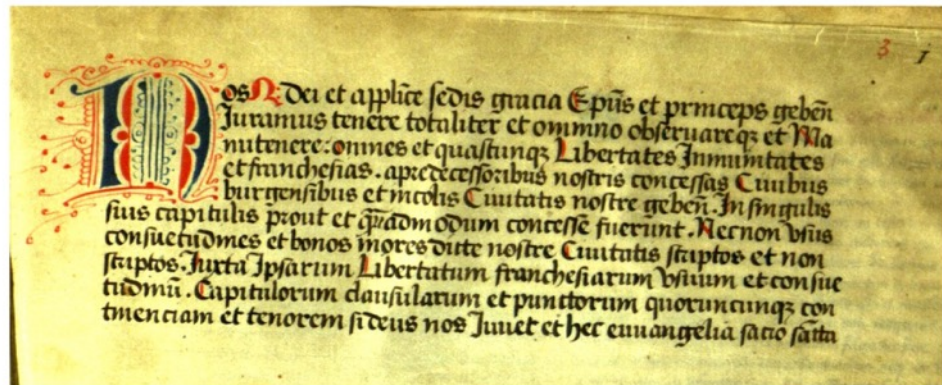 3 1
Nos N. Dei et applice sedis gracia Epus et princeps geben
Juramus tenere totaliter et omnino obseruare qz et Ma
nutenere: omnes et quascunqz Libertates Inmunitates
et franchesias. a predecessoribus nostris concessas Ciuibus
burgensibus et incolis Ciuitatis nostre geben. In singulis
suis capitulis prout et quadmodum concesse fuerunt. Necnon vsus
consuetudines et bonos mores dicte nostre Ciuitatis scriptos et non
scriptos. Juxta Ipsarum Libertatum franchesiarum vsuum et consue
tudinu. Capitulorum clausularum et punctorum quoruncunqz con
tinenciam et tenorem si deus nos Juuet et hec euuangelia sacro sancta